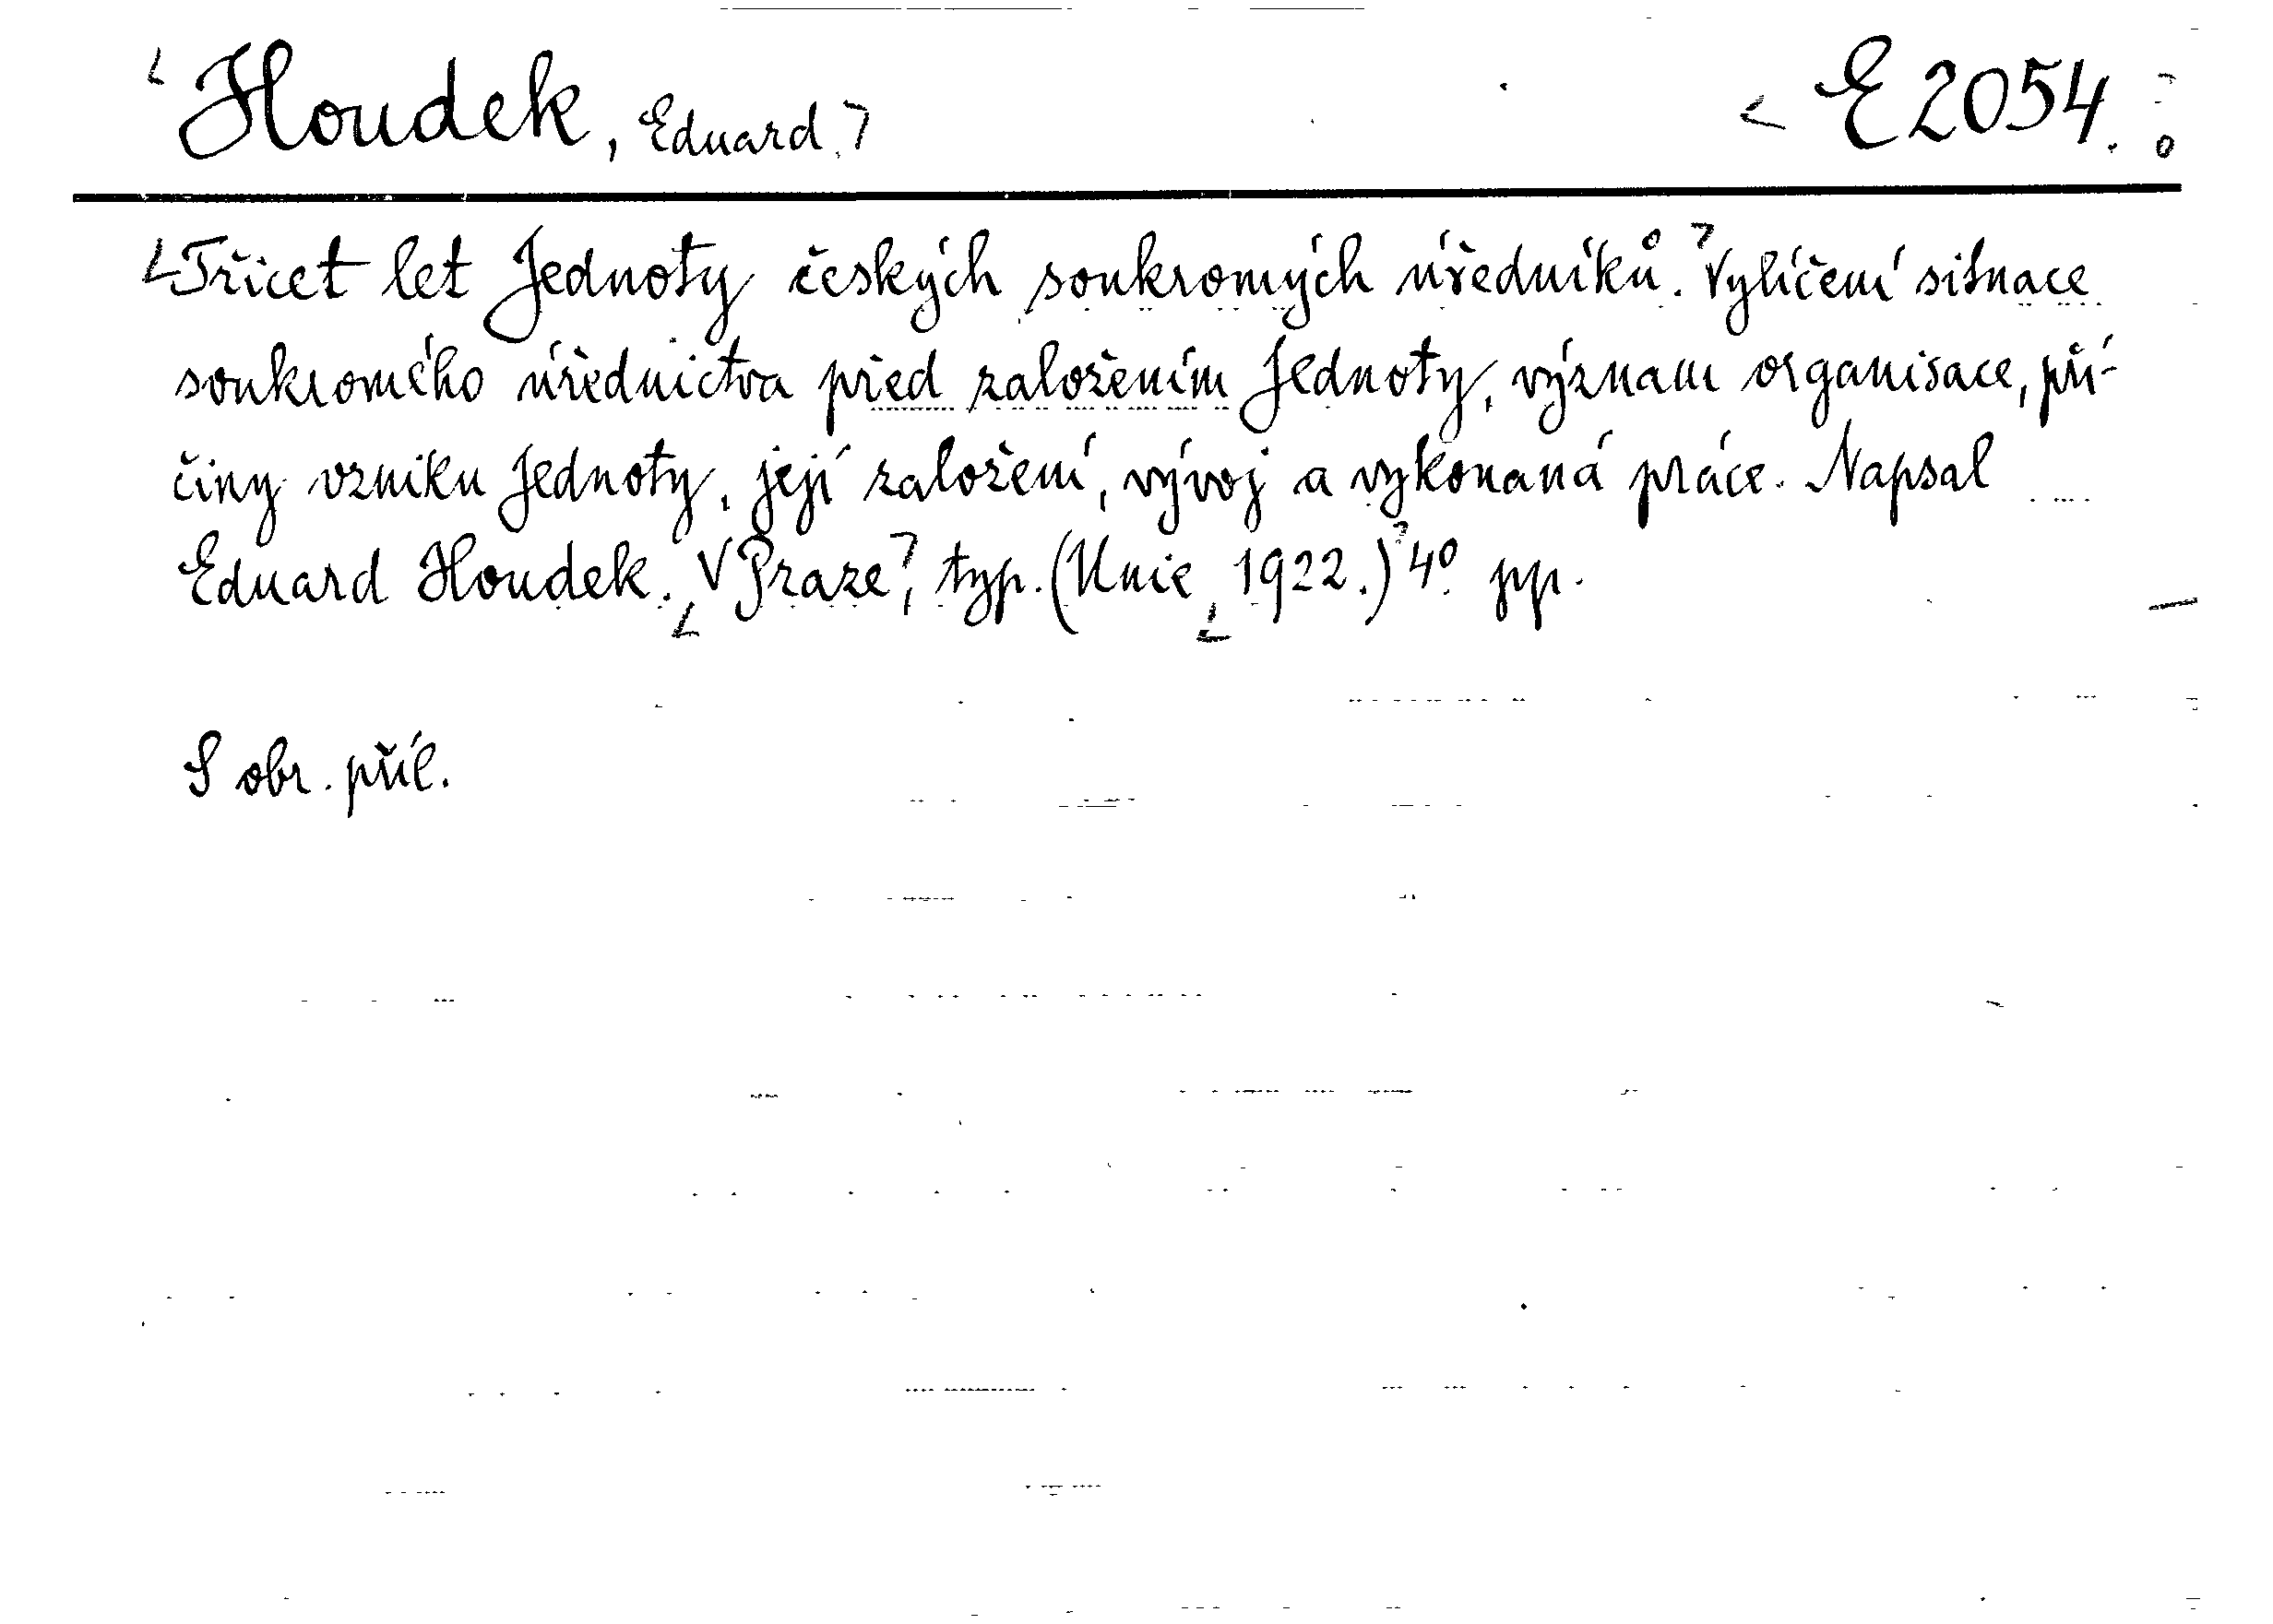 Houdek, Eduard. E 2054.
Třicet let Jednoty českých soukromých úředníků. Vylíčení situace
soukromého úřednictva před založením Jednoty, význam organisace, pří-
činy vzniku Jednoty, její založení, vývoj a vykonaná práce. Napsal
Eduard Houdek. V Praze, typ. (Unie 1922.) 4° pp.
S obr. příl.